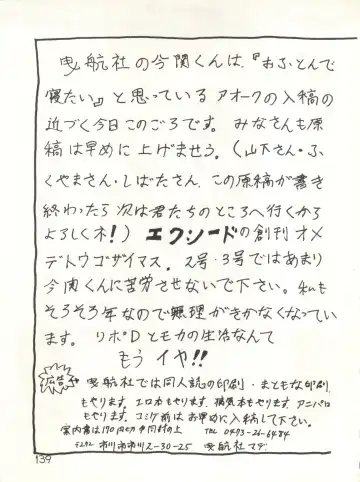 曳航社の今関くんは、『おふとんで
寝たい』と思っている アオークの入稿の
近づく今日このごろです。 みなさんも原
稿は早めに 上げませう。(山下さん・ふ
くやまさん・しばたさん、この原稿が書き
終わったら次は君たちのところへ行くから
よろしくネ!) エクシードの創刊 オメ
デトウゴザイマス。 2号・3号ではあまり
今関くんに苦労させないで下さい。私も
そろそろ年なので無理がきかなくなってい
ます。 リポDとモカの生活なんて
もう イヤ!!
広告 曳航社では同人誌の印刷・まともな印刷
もやります。エロ本もやります。 アニパロ
もやります。コミケ前はお早めに入稿して下さい。
案内書は170円切手同封の上 TEL 0473-26-6484
〒272 市川市市川2-30-25 曳航社マデ
139